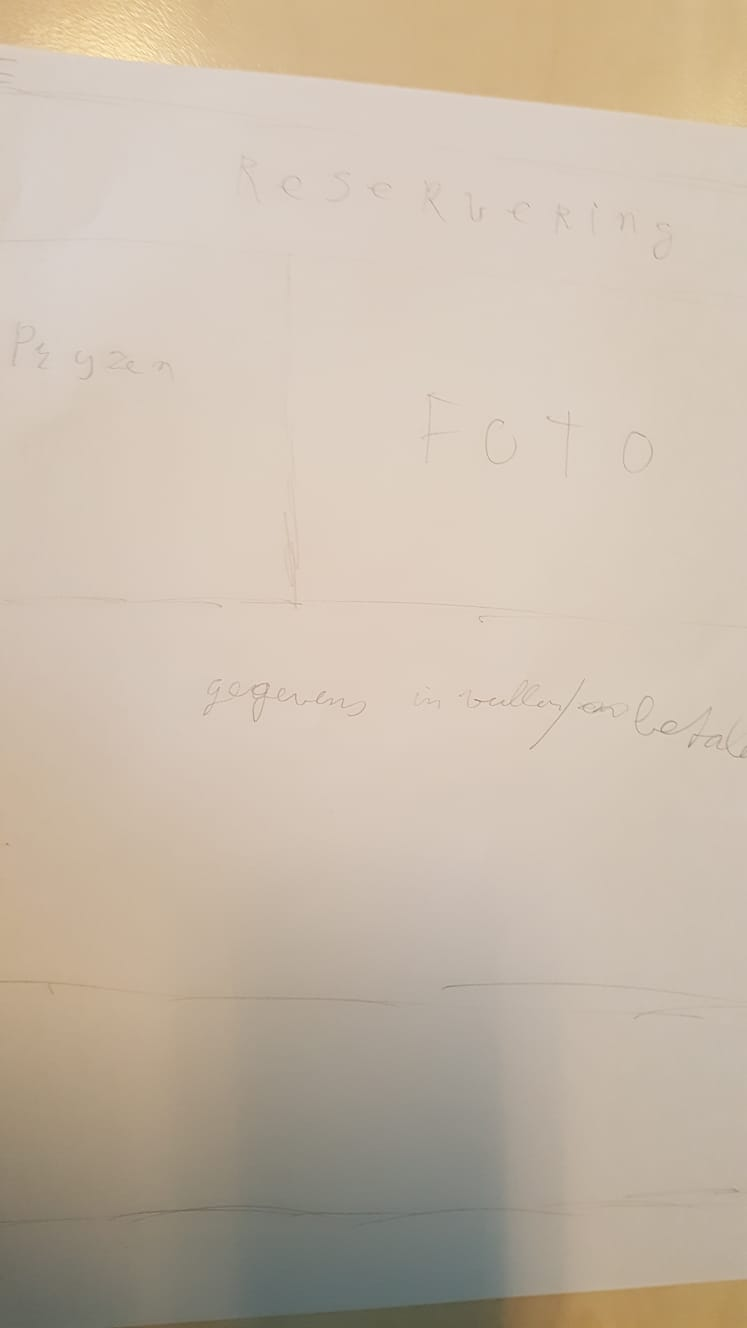 Reservering
Pryzen
FOTO
gegevens in vullen/en betale